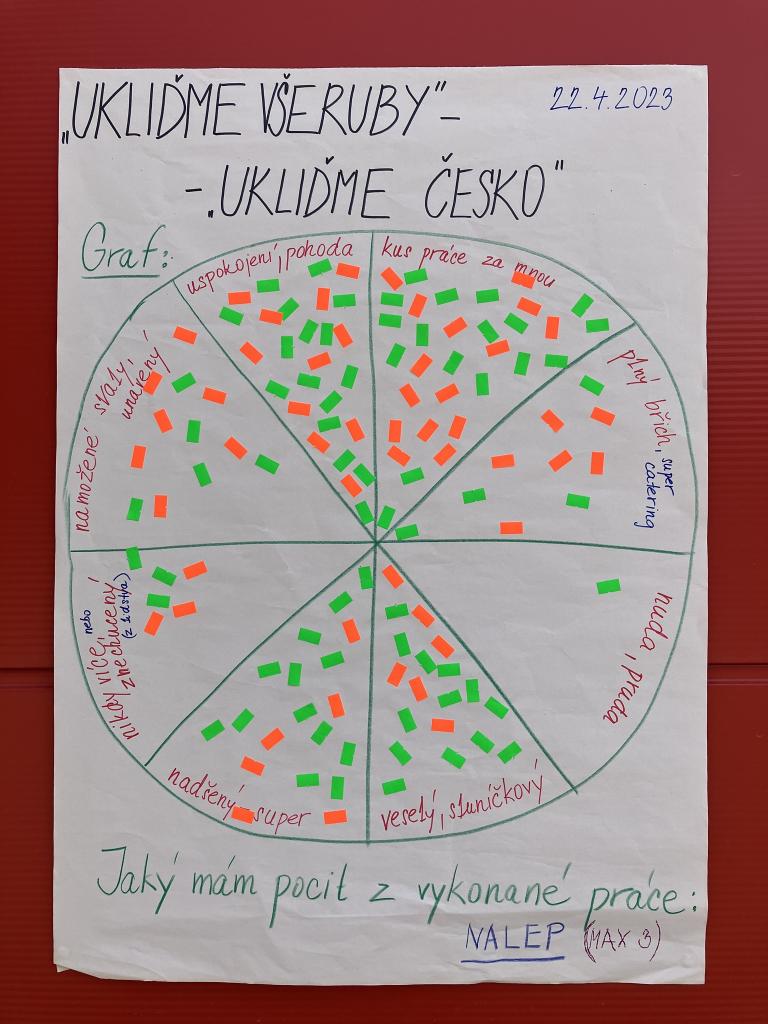 „UKLIĎME VŠERUBY"–
22.4.2023
–„UKLIĎME ČESKO"
Graf:
uspokojení, pohoda
kus práce za mnou
plný břich, super
catering
nuda, pruda
veselý, sluníčkový
nadšený – super
nikdy více, nebo
znechucený
namožené svaly,
unavený
Jaký mám pocit z vykonané práce:
NALEP (MAX 3)